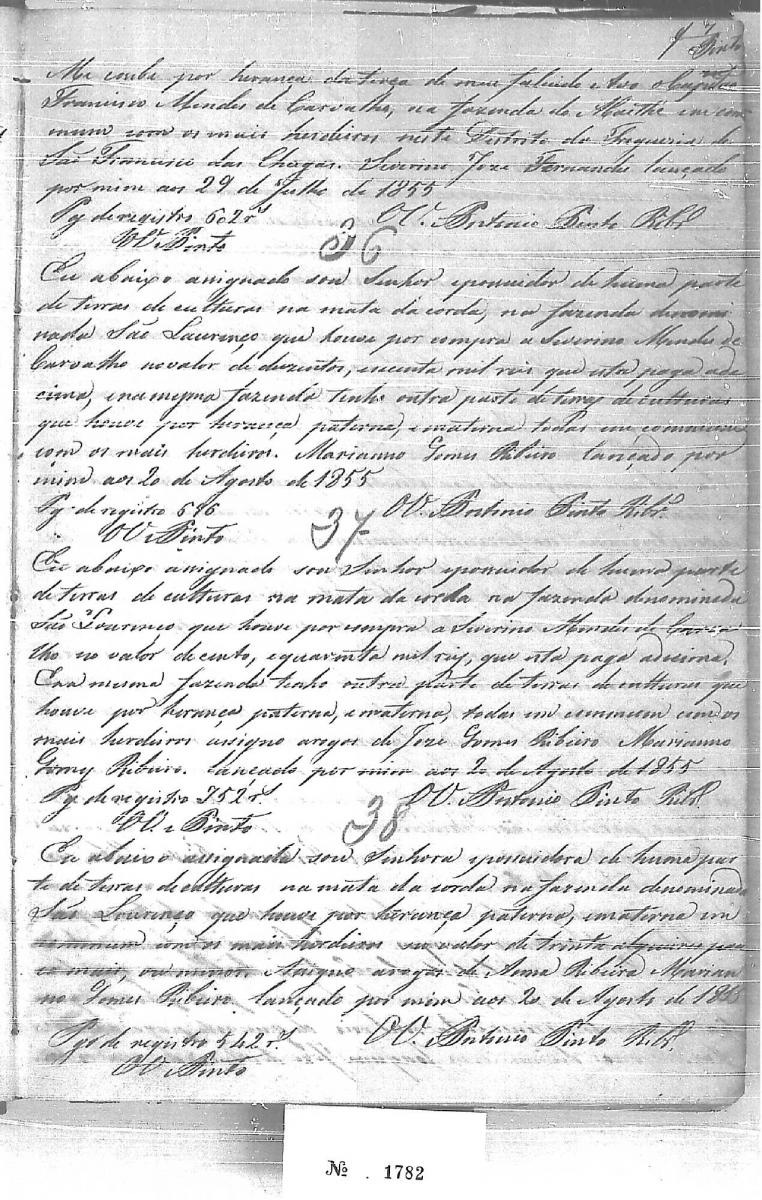 7
Pinto
Me coube por herança da terça de meu falicido Avo o Capitão
Francisco Mendes de Carvalho, na fazenda do Mothe em com
mum com os mais herdeiros neste Destrito da Freguezia de
São Francisco das Chagas. Severino Joze Fernandes lançado
por mim aos 29 de Julho de 1855
Pg de registro 602 rs O V. Antonio Pinto Ribr.
O V. Pinto
36
Eu abaixo assignado sou Senhor epossuidor de huma parte
de terras de culturas na mata da corda, na fazenda denomi
nada São Lourenço que houve por compra a Severino Mendes de
Carvalho no valor de duzentos, ecuenta mil reis que esta paga ade
cima, ena mesma fazenda tenho outra parte de terras de culturas
que houve por herança paterna, e materna todas em commum
com os mais herdeiros. Marianno Gomes Ribeiro lançado por
mim aos 20 de Agosto de 1855
Pg de registro 676 O V. Antonio Pinto Ribr.
O V. Pinto
37
Eu abaixo assignado sou Senhor epossuidor de huma parte
de terras de culturas na mata da corda na fazenda denominada
São Lourenço que houve por compra a Severino Mendes de Carva
lho no valor de cento, equarenta mil reis, que esta paga adecima.
Ena mesma fazenda tenho outra parte de terras de culturas que
houve por herança paterna, e materna, todas em commum com os
mais herdeiros assigno arogos de Joze Gomes Ribeiro Marianno
Gomes Ribeiro. lançado por mim aos 20 de Agosto de 1855
Pg de registro 752 rs O V. Antonio Pinto Ribr.
O V. Pinto
38
Eu abaixo assignada sou Senhora epossuidora de huma par
te de terras de culturas na mata da corda na fazenda denominada
São Lourenço que houve por herança paterna, ematerna em
commum com os mais herdeiros no valor de trinta alqueires pou
co mais, ou menos. Assigno arogos de Anna Ribeira Marian
no Gomes Ribeiro. lançado por mim aos 20 de Agosto de 1855
Pgo de registro 542 rs O V. Antonio Pinto Ribr.
O V. Pinto
No. 1782